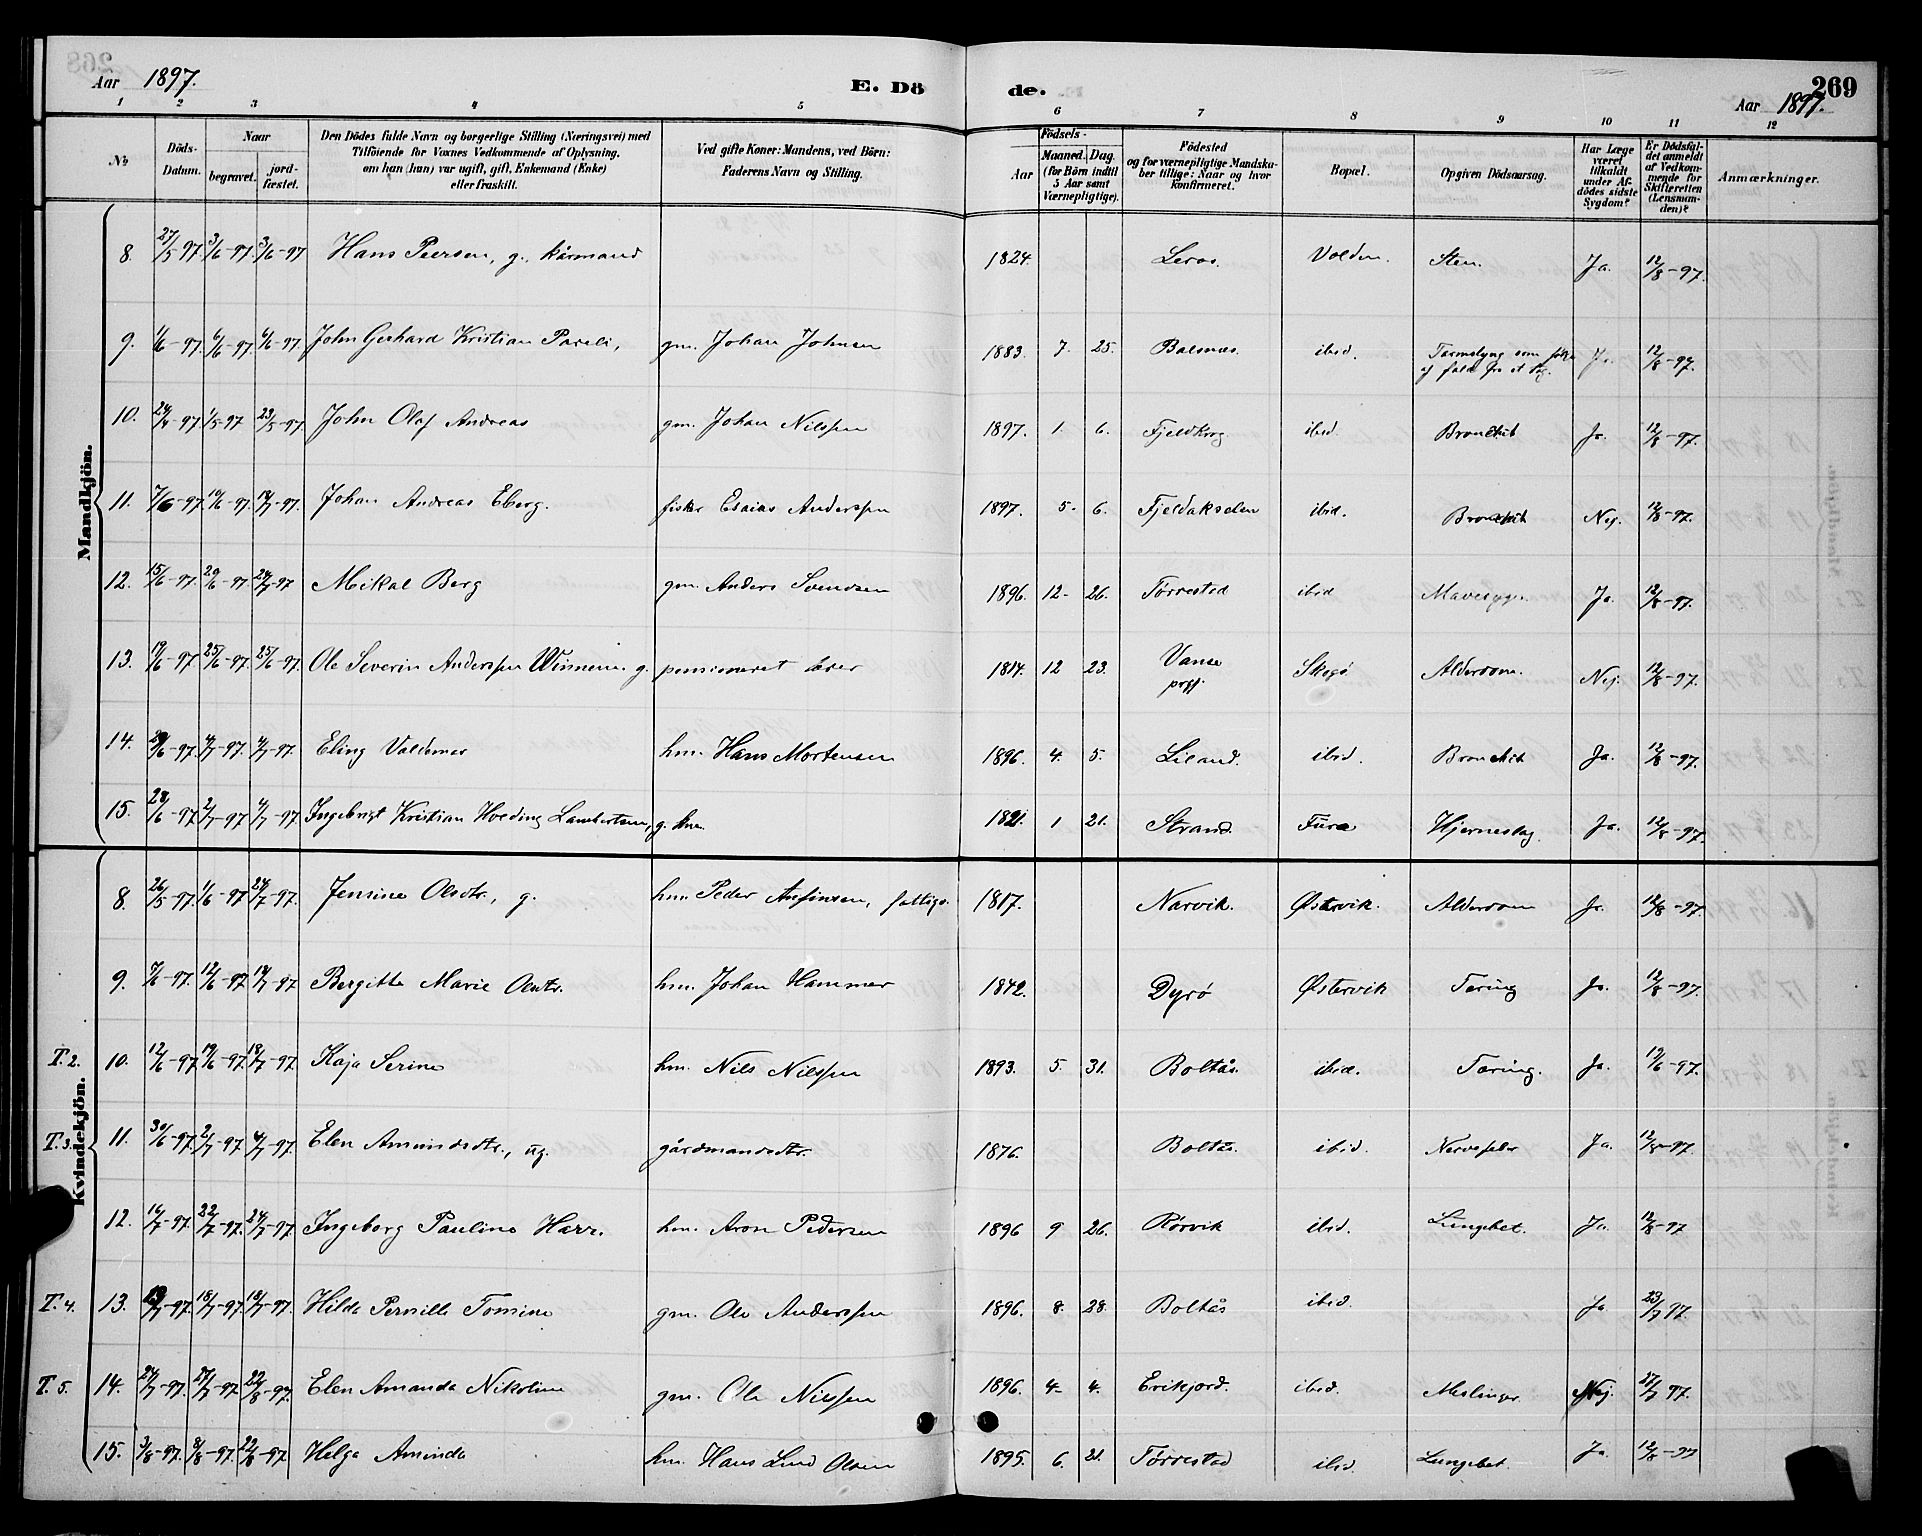 Aar 1897. E. Dö de. 269
Aar 1897.
1 2 3 4 5 6 7 8 9 10 11 12
No
Döds-Datum.
Naar
begravet.
jord-fæstet.
Den Dödes fulde Navn og borgerlige Stilling (Næringsvei) med
Tilföiende for Voxnes Vedkommende af Oplysning,
om han (hun) var ugift, gift, Enkemand (Enke)
eller fraskilt.
Ved gifte Koner: Mandens, ved Börn:
Faderens Navn og Stilling.
Födsels-
Aar
Maaned. Dag.
(for Börn indtil
5 Aar samt
Værnepligtige).
Födested
og for værnepligtige Mandska-
ber tillige: Naar og hvor
konfirmeret.
Bopæl.
Opgiven Dödsaarsag.
Har Læge
været
tilkaldt
under Af-
dödes sidste
Sygdom?
Er Dödsfal-
det anmeldt
af Vedkom-
mende for
Skifteretten
(Lensman-
den)?
Anmærkninger.
Mandkjön.
8. 27/5-97. 3/6-97. 3/6-97 Hans Peersen, g., kårmand 1824. Leros. Volden. Sten. Ja. 12/8-97.
9. 1/6-97. 6/6-97. 6/6-97. John Gerhard Kristian Pareli, gm. Johan Johnsen 1883. 7. 25. Balsnes. ibid. Tarmslyng som følge af fald fra et Ja. 12/8-97.
10. 24/4-97. 1/5-97 23/5-97. John Olaf Andreas gm. Johan Nilssen 1897. 1. 6. Fjeldkrog. ibid. Bronchit Ja. 12/8-97.
11. 7/6-97. 10/6-97. 18/7-97. Johan Andreas Eberg. fisker Esaias Anderssen 1897. 5. 6. Fjeldakselen ibid. Bronchit Nej. 12/8-97.
12. 15/6-97. 20/6-97. 24/7-97 Mikal Berg gm. Anders Svendsen 1896. 12. 26. Tørrestad ibid Mavesyge. Ja. 12/8-97.
13. 19/6-97. 25/6-97. 25/6-97. Ole Severin Anderssen g. pensioneret lærer 1814. 12 23. Vanse prgj. Skogø Alderdom. Nej. 12/8-97.
14. 29/6-97. 4/7-97. 4/7-97. Eling Valdemar hm. Hans Mortensen 1896. 4. 5. Liland. ibid. Bronchit Ja. 12/8-97.
15. 28/6-97. 2/7-97 4/7-97. Ingebrigt Kristian Hveding Lambertsen, g. hm. 1821. 1 21. Strand. Furø Hjerneslag. Ja. 12/8-97.
Kvindekjön.
8. 26/5-97. 1/6-97 24/7-97. Jensine Olsdtr., g. hm. Peder Anfinsen, fattigl. 1817. Narvik. Østervik. Alderdom Ja. 12/8-97.
9. 7/6-97. 12/6-97 18/7-97 Bergitte Marie Olsdtr. hm. Johan Hammer 1842. Dyrø Østervik Tæring Ja. 12/8-97.
T. 2. 10. 12/6-97 19/6-97. 18/7-97. Kaja Serine hm. Nils Nilssen 1893. 5. 31. Boltås. ibid. Tæring. Ja. 19/6-97.
T. 3. 11. 30/6-97. 2/7-97 4/7-97. Elen Amundsdtr., ug. gårdmandsdtr. 1876. Boltås. ibid. Nervefeber Ja. 12/8-97.
12. 16/7-97. 22/7-97. 24/7-97. Ingeborg Pauline Harr. hm. Aron Pedersen 1896 9 26. Rørvik ibid. Lungebet. Ja. 12/8-97
T. 4. 13. 13/7-97. 18/7-97. 18/7-97. Hilda Pernille Tomine gm. Ole Anderssen 1896. 8. 28. Boltås ibid. Ja 23/7 97.
T. 5. 14. 24/7-97. 27/7-97 22/8-97. Elen Amanda Nikoline gm. Ole Nilssen 1896. 4. 4. Erikjord. ibid. Meslinger Nej. 27/7 97.
15. 3/8-97. 8/8-97. 22/8-97. Helga Aminda hm. Hans Lind Olsen 1895. 6. 21. Tørrestad ibid. Lungebet. Ja. 12/8-97